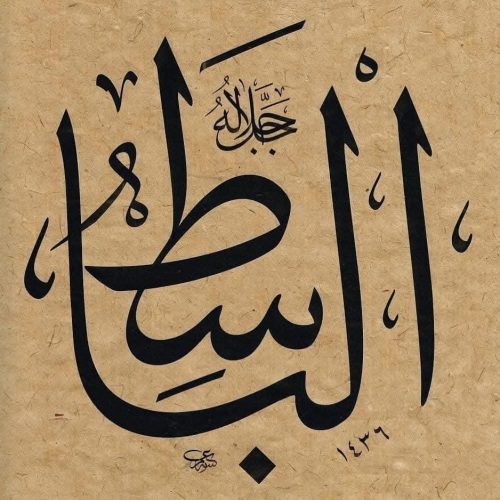 الباسط
جل جلاله
١٤٣٦